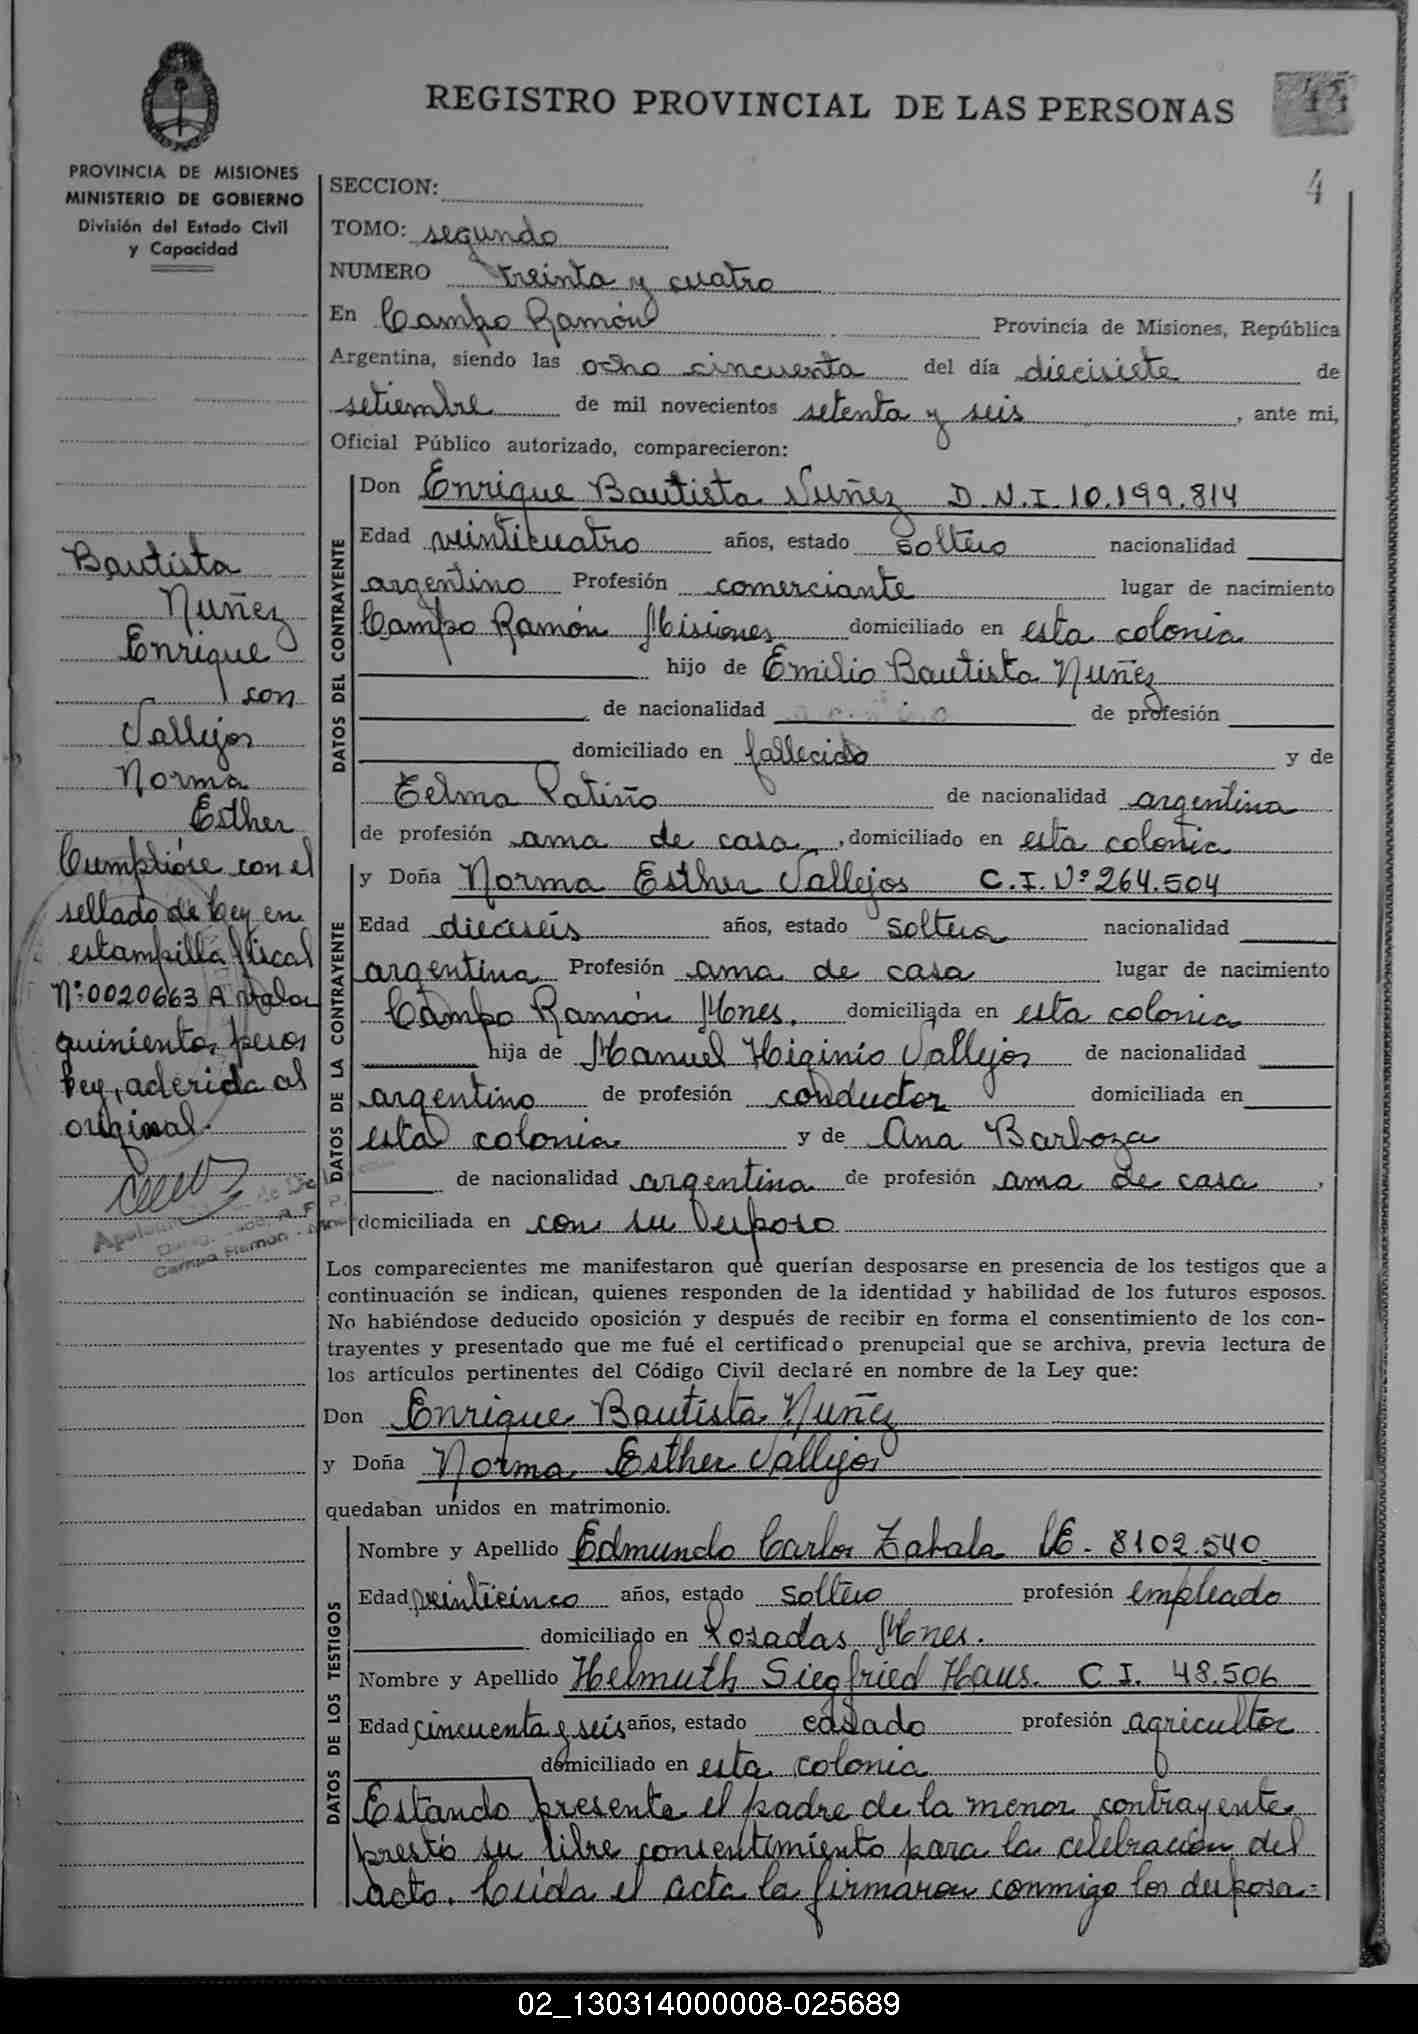 REGISTRO PROVINCIAL DE LAS PERSONAS
4
PROVINCIA DE MISIONES
MINISTERIO DE GOBIERNO
División del Estado Civil
y Capacidad
SECCION:
TOMO: segundo
NUMERO treinta y cuatro
En Campo Ramón Provincia de Misiones, República
Argentina, siendo las ocho cincuenta del día diecisiete de
setiembre de mil novecientos setenta y seis, ante mi,
Oficial Público autorizado, comparecieron:
Bautista
Nuñez
Enrique
con
Vallejos
Norma
Esther
Cumplióse con el
sellado de Ley en
estampilla fiscal
Nº:0020663 A valor
quinientos pesos
Ley, aderida al
original.
Campo Ramón
DATOS DEL CONTRAYENTE
Don Enrique Bautista Nuñez D.N.I. 10.199.814
Edad veinticuatro años, estado soltero nacionalidad
argentino Profesión comerciante lugar de nacimiento
Campo Ramón Misiones domiciliado en esta colonia
hijo de Emilio Bautista Nuñez
de nacionalidad de profesión
domiciliado en fallecido y de
Telma Patiño de nacionalidad argentina
de profesión ama de casa, domiciliado en esta colonia
DATOS DE LA CONTRAYENTE
y Doña Norma Esther Vallejos C.I. Nº 264.504
Edad dieciseis años, estado soltera nacionalidad
argentina Profesión ama de casa lugar de nacimiento
Campo Ramón Mnes. domiciliada en esta colonia
hija de Manuel Higinio Vallejos de nacionalidad
argentino de profesión conductor domiciliada en
esta colonia y de Ana Barboza
de nacionalidad argentina de profesión ama de casa,
domiciliada en con su esposo
Los comparecientes me manifestaron que querían desposarse en presencia de los testigos que a
continuación se indican, quienes responden de la identidad y habilidad de los futuros esposos.
No habiéndose deducido oposición y después de recibir en forma el consentimiento de los con-
trayentes y presentado que me fué el certificado prenupcial que se archiva, previa lectura de
los artículos pertinentes del Código Civil declaré en nombre de la Ley que:
Don Enrique Bautista Nuñez
y Doña Norma Esther Vallejos
quedaban unidos en matrimonio.
DATOS DE LOS TESTIGOS
Nombre y Apellido Edmundo Carlos Zabala LE. 8102.540
Edad veinticinco años, estado soltero profesión empleado
domiciliado en Posadas Mnes.
Nombre y Apellido Helmuth Siegfried Haus. C.I. 48.506
Edad cincuenta y seis años, estado casado profesión agricultor
domiciliado en esta colonia
Estando presente el padre de la menor contrayente
prestó su libre consentimiento para la celebración del
acto. Leída el acta la firmaron conmigo los desposa=
02_130314000008-025689